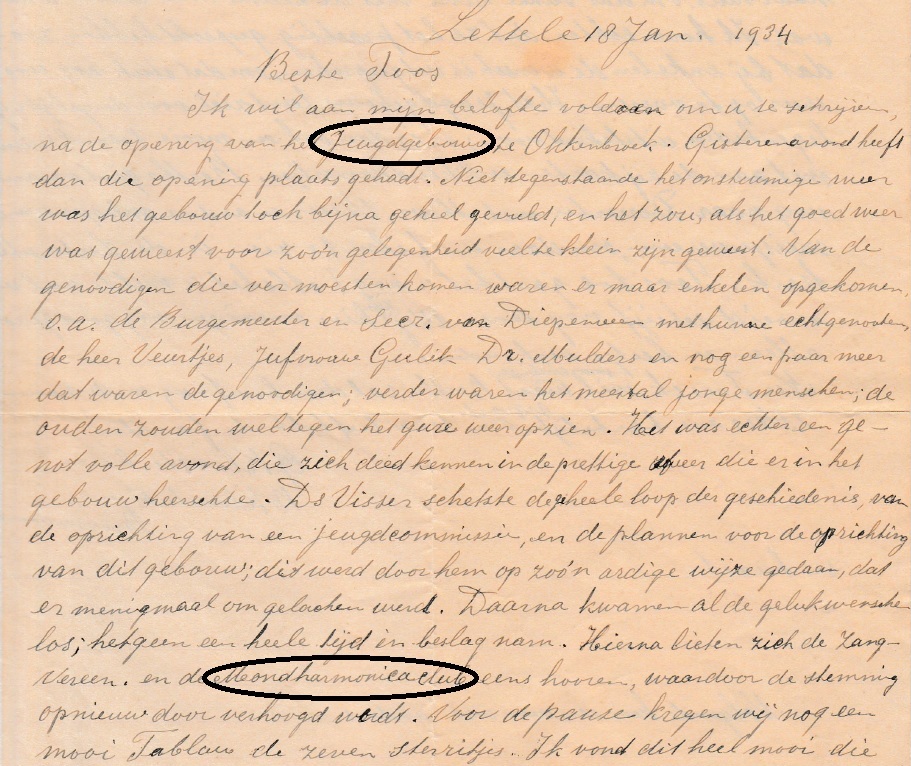 Lettele 18 Jan. 1934
Beste Toos
Ik wil aan mijn belofte voldoen om u te schrijven,
na de opening van het Jeugdgebouw te Okkenbroek. Gisterenavond heeft
dan die opening plaats gehadt. Niet tegenstaande het onstuimige weer
was het gebouw toch bijna geheel gevuld, en het zou, als het goed weer
was geweest voor zoo'n gelegenheid veel te klein zijn geweest. Van de
genoodigen die ver moesten komen waren er maar enkelen opgekomen,
o.a. de Burgemeester en Secr. van Diepenveen met hunne echtgenooten,
de heer Veurtjes, Jufvrouw Gulik Dr. Mulders en nog een paar meer
dat waren de genoodigen; verder waren het meestal jonge menschen; de
ouden zouden wel tegen het gure weer opzien. Het was echter een ge-
not volle avond, die zich deed kennen in de prettige sfeer die er in het
gebouw heerschte. Ds Visser schetste de geheele loop der geschiedenis, van
de oprichting van een jeugdcommissie, en de plannen voor de oprichting
van dit gebouw; dit werd door hem op zoo'n ardige wijze gedaan, dat
er menigmaal om gelachen werd. Daarna kwamen al de gelukwenschen
los; hetgeen een heele tijd in beslag nam. Hierna lieten zich de Zang-
Vereen. en de Mondharmonica club eens hooren, waardoor de stemming
opnieuw door verhoogd werdt. Voor de pauze kregen wij nog een
mooi Tablau de zeven sterritjes. Ik vond dit heel mooi die